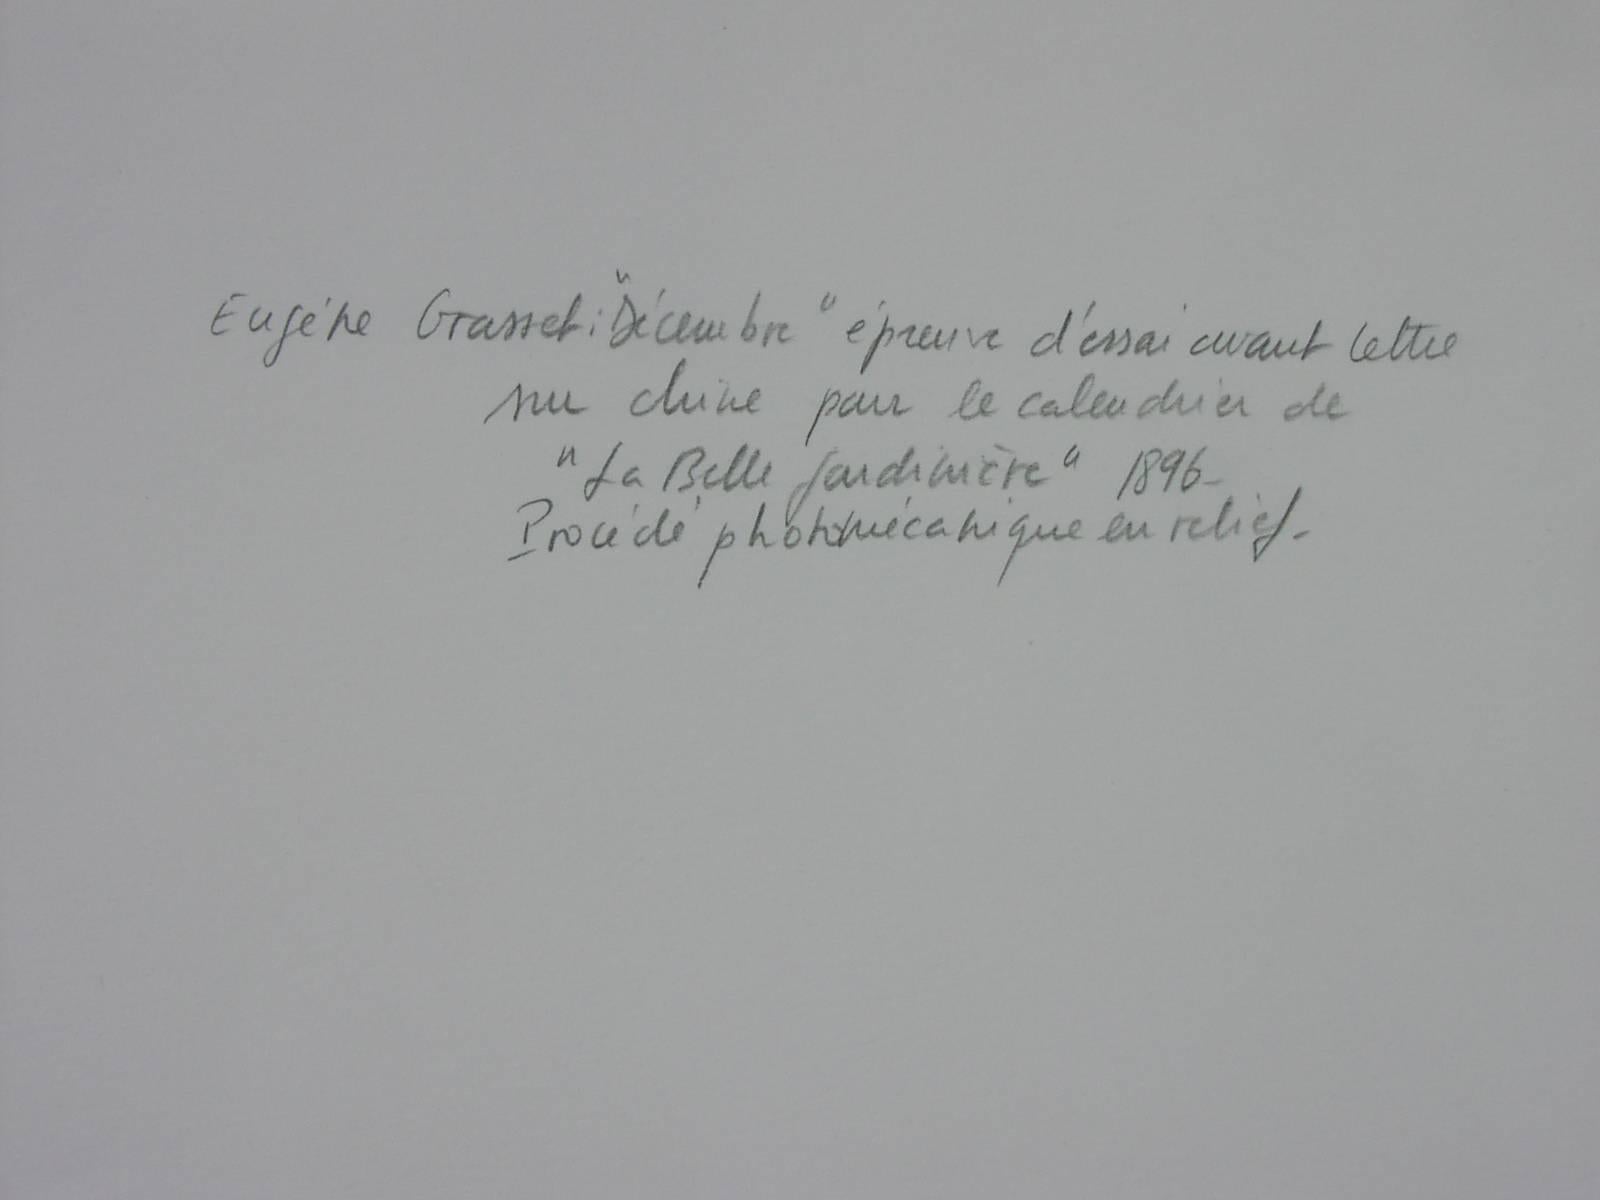 Eugéne Grasset : "Décembre" épreuve d'essai avant lettre
sur chine pour le calendrier de
"La Belle Jardinière" 1896-
Procédé photomécanique en relief-